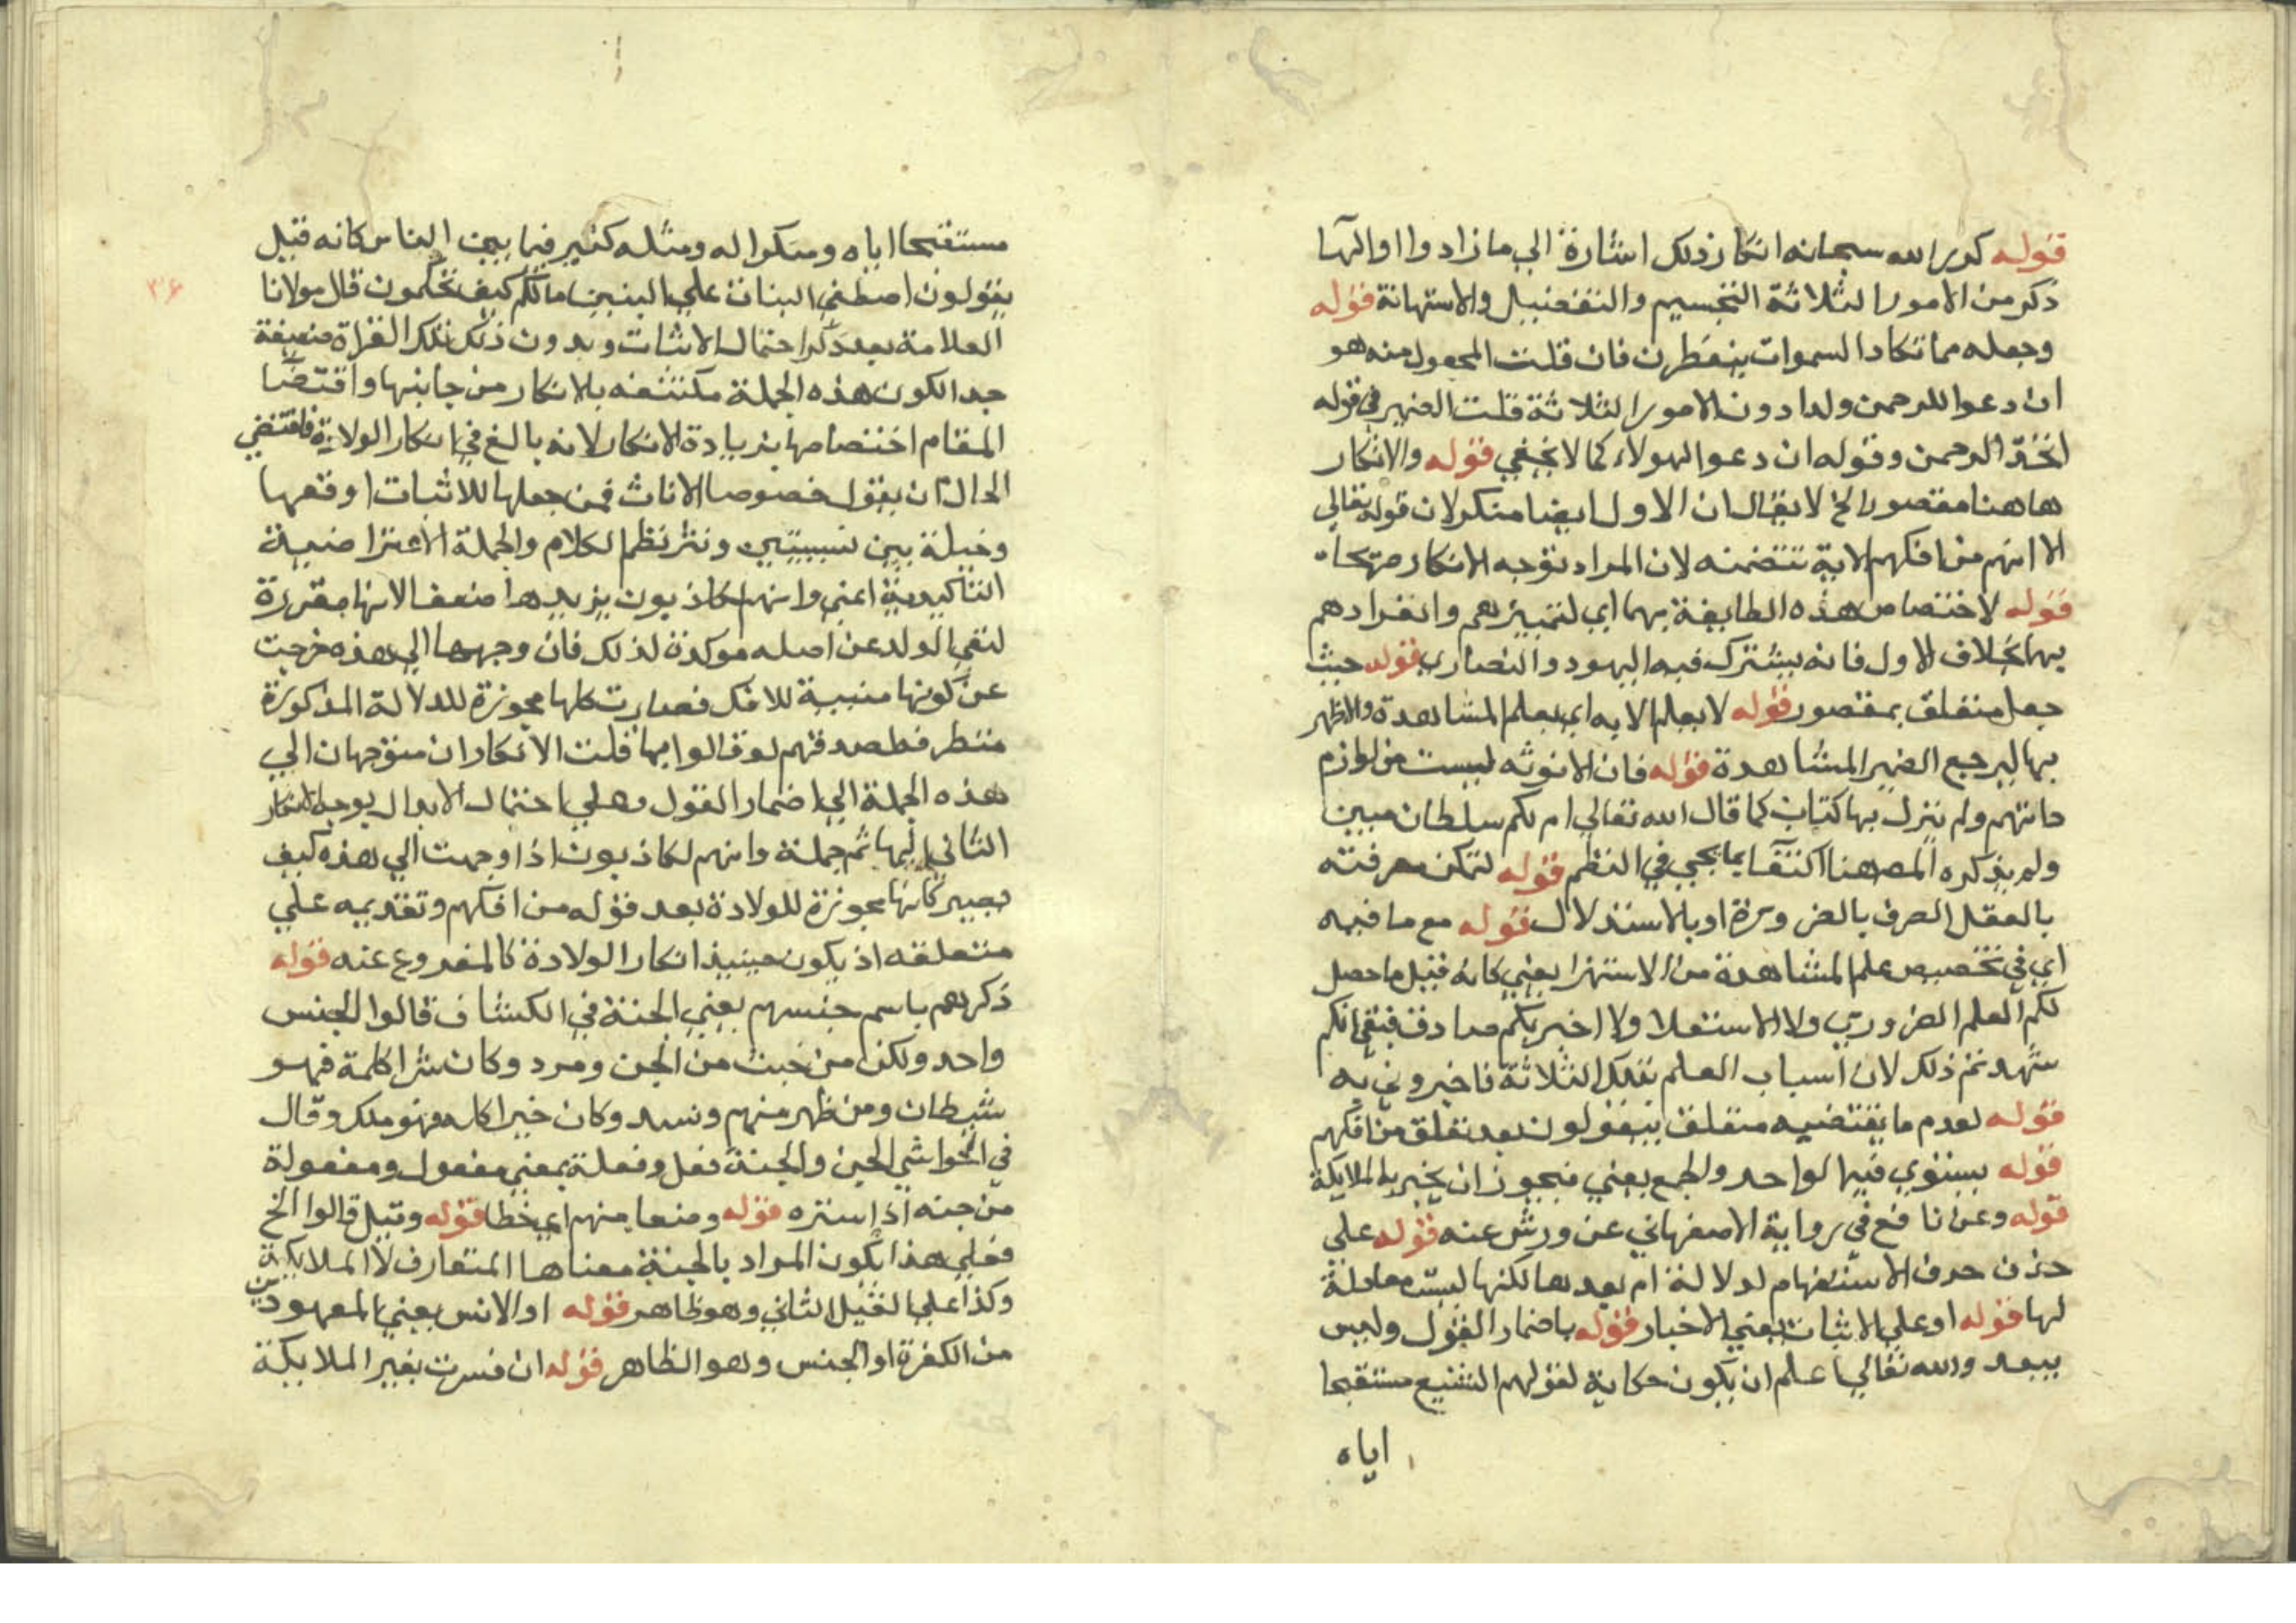 قوله كرر الله سبحانه انكار ذلك اشارة الى ما زادوا او الى ما
ذكر من الامور الثلاثة التجسيم والتفضيل والاستهانة قوله
وجعله مما تكاد السموات ينفطرن فان قلت المجعول منه هو
ان دعوا للرحمن ولدا دون الامور الثلاثة قلت الضمير في قوله
اتخذ الرحمن وقوله ان دعوا لهولاء كما لا يخفي قوله والانكار
هاهنا مقصور الخ لا يقال ان الاول ايضا منكر لان قوله تعالي
الا انهم من افكهم الاية تتضمنه لان المراد توجه الانكار
قوله لاختصاص هذه الطايفة بهما اي لتمييزهم وانفرادهم
بهما بخلاف الاول فانه يشترك فيه اليهود والنصاري قوله حيث
جعل متعلق بمقصور قوله لا يعلم الا به اي بعلم المشاهدة والاظهر
بها ليرجع الضمير المشاهدة قوله فان الانوثه ليست من لوازم
ذاتهم ولم ينزل بها كتاب كما قال الله تعالي ام لكم سلطان مبين
ولم يذكره المص هنا اكتفا بما يجي في النظم قوله لتمكن معرفته
بالعقل الصرف بالضرورة او بالاستدلال قوله مع ما فيه
اي في تخصيص علم المشاهدة من الاستهزا يعني كانه قيل ما حصل
لكم العلم الضروري ولا الاستدلا ولا اخبربكم صادق فبقي انكم
شهدتم ذلك لان اسباب العلم تلك الثلاثة فاخبروني به
قوله لعدم ما يقتضيه متعلق بيقولون بعد تعلق من افكهم
قوله يستوي فيها لواحد والجمع يعني فيجوز ان يخبر به الملايكة
قوله وعن نافع في رواية الاصفهاني عن ورش عنه قوله علي
حذف حرف الاستفهام لدلالة ام بعدها لكنها ليست معادلة
لها قوله او علي الاثبات يعني الاخبار قوله باضمار القول وليس
ببعد والله تعالي اعلم ان يكون حكاية لقولهم الشنيع مستقبحا
اياه
مستقبحا اياه ومنكرا له ومثله كثير فيما بين الناس كانه قيل
يقولون اصطفي البنات علي البنين مالكم كيف تحكمون قال مولانا
العلامة بعد ذكر احتمال الاثبات وبدون ذلك تلك القراة ضعيفة
جدا لكون هذه الجملة مكتنفه بالانكار من جانبيها واقتضا
المقام اختصاصها بزيادة الانكار لانه بالغ في انكار الولاية فاقتضي
الحال ان يقول خصوصا الاناث فمن جعلها للاثبات اوقعها
دخيلة بين نسيبتين ونثر نظم الكلام والجملة الاعتراضية
التاكيدية اعني وانهم لكاذبون يزيدها ضعفا لانها مقررة
لنفي الولد عن اصله موكدة لذلك فان وجهها الي هذه خرجت
عن كونها مبنية للافك فصارت كلها مجوزة للدلالة المذكورة
فصدقهم لو قالوا بها قلت الانكاران متوجهان الي
هذه الجملة الي اضمار القول وعلي احتمال الابدال يوجه الانكار
الثاني اليها ثم جملة وانهم لكاذبون اذا وجهت الي هذه كيف
تصير كانها مجوزة للولادة بعد قوله من افكهم وتقديمه علي
متعلقه اذ يكون حينيذ انكار الولادة كالمفروغ عنه قوله
ذكرهم باسم جنسهم يعني الجنة في الكشاف قالوا الجنس
واحد ولكن من خبث من الجن ومرد وكان شرا كلمة فهو
شيطان ومن ظهر منهم ونسد وكان خيرا كله فهو ملك وقال
في الحواشي الجن والجنة فعل وفعلة بمعني مفعول ومفعولة
من جنه اذا ستره قوله وضعا منهم اي حطا قوله وقيل قالوا الخ
فعلي هذا يكون المراد بالجنة معناها المتعارف لا الملايكة
وكذا علي القيل الثاني وهو ظاهر قوله او الانس يعني المعهودين
من الكفرة او الجنس وهو الظاهر قوله ان فسرت بغير الملايكة
٣٤